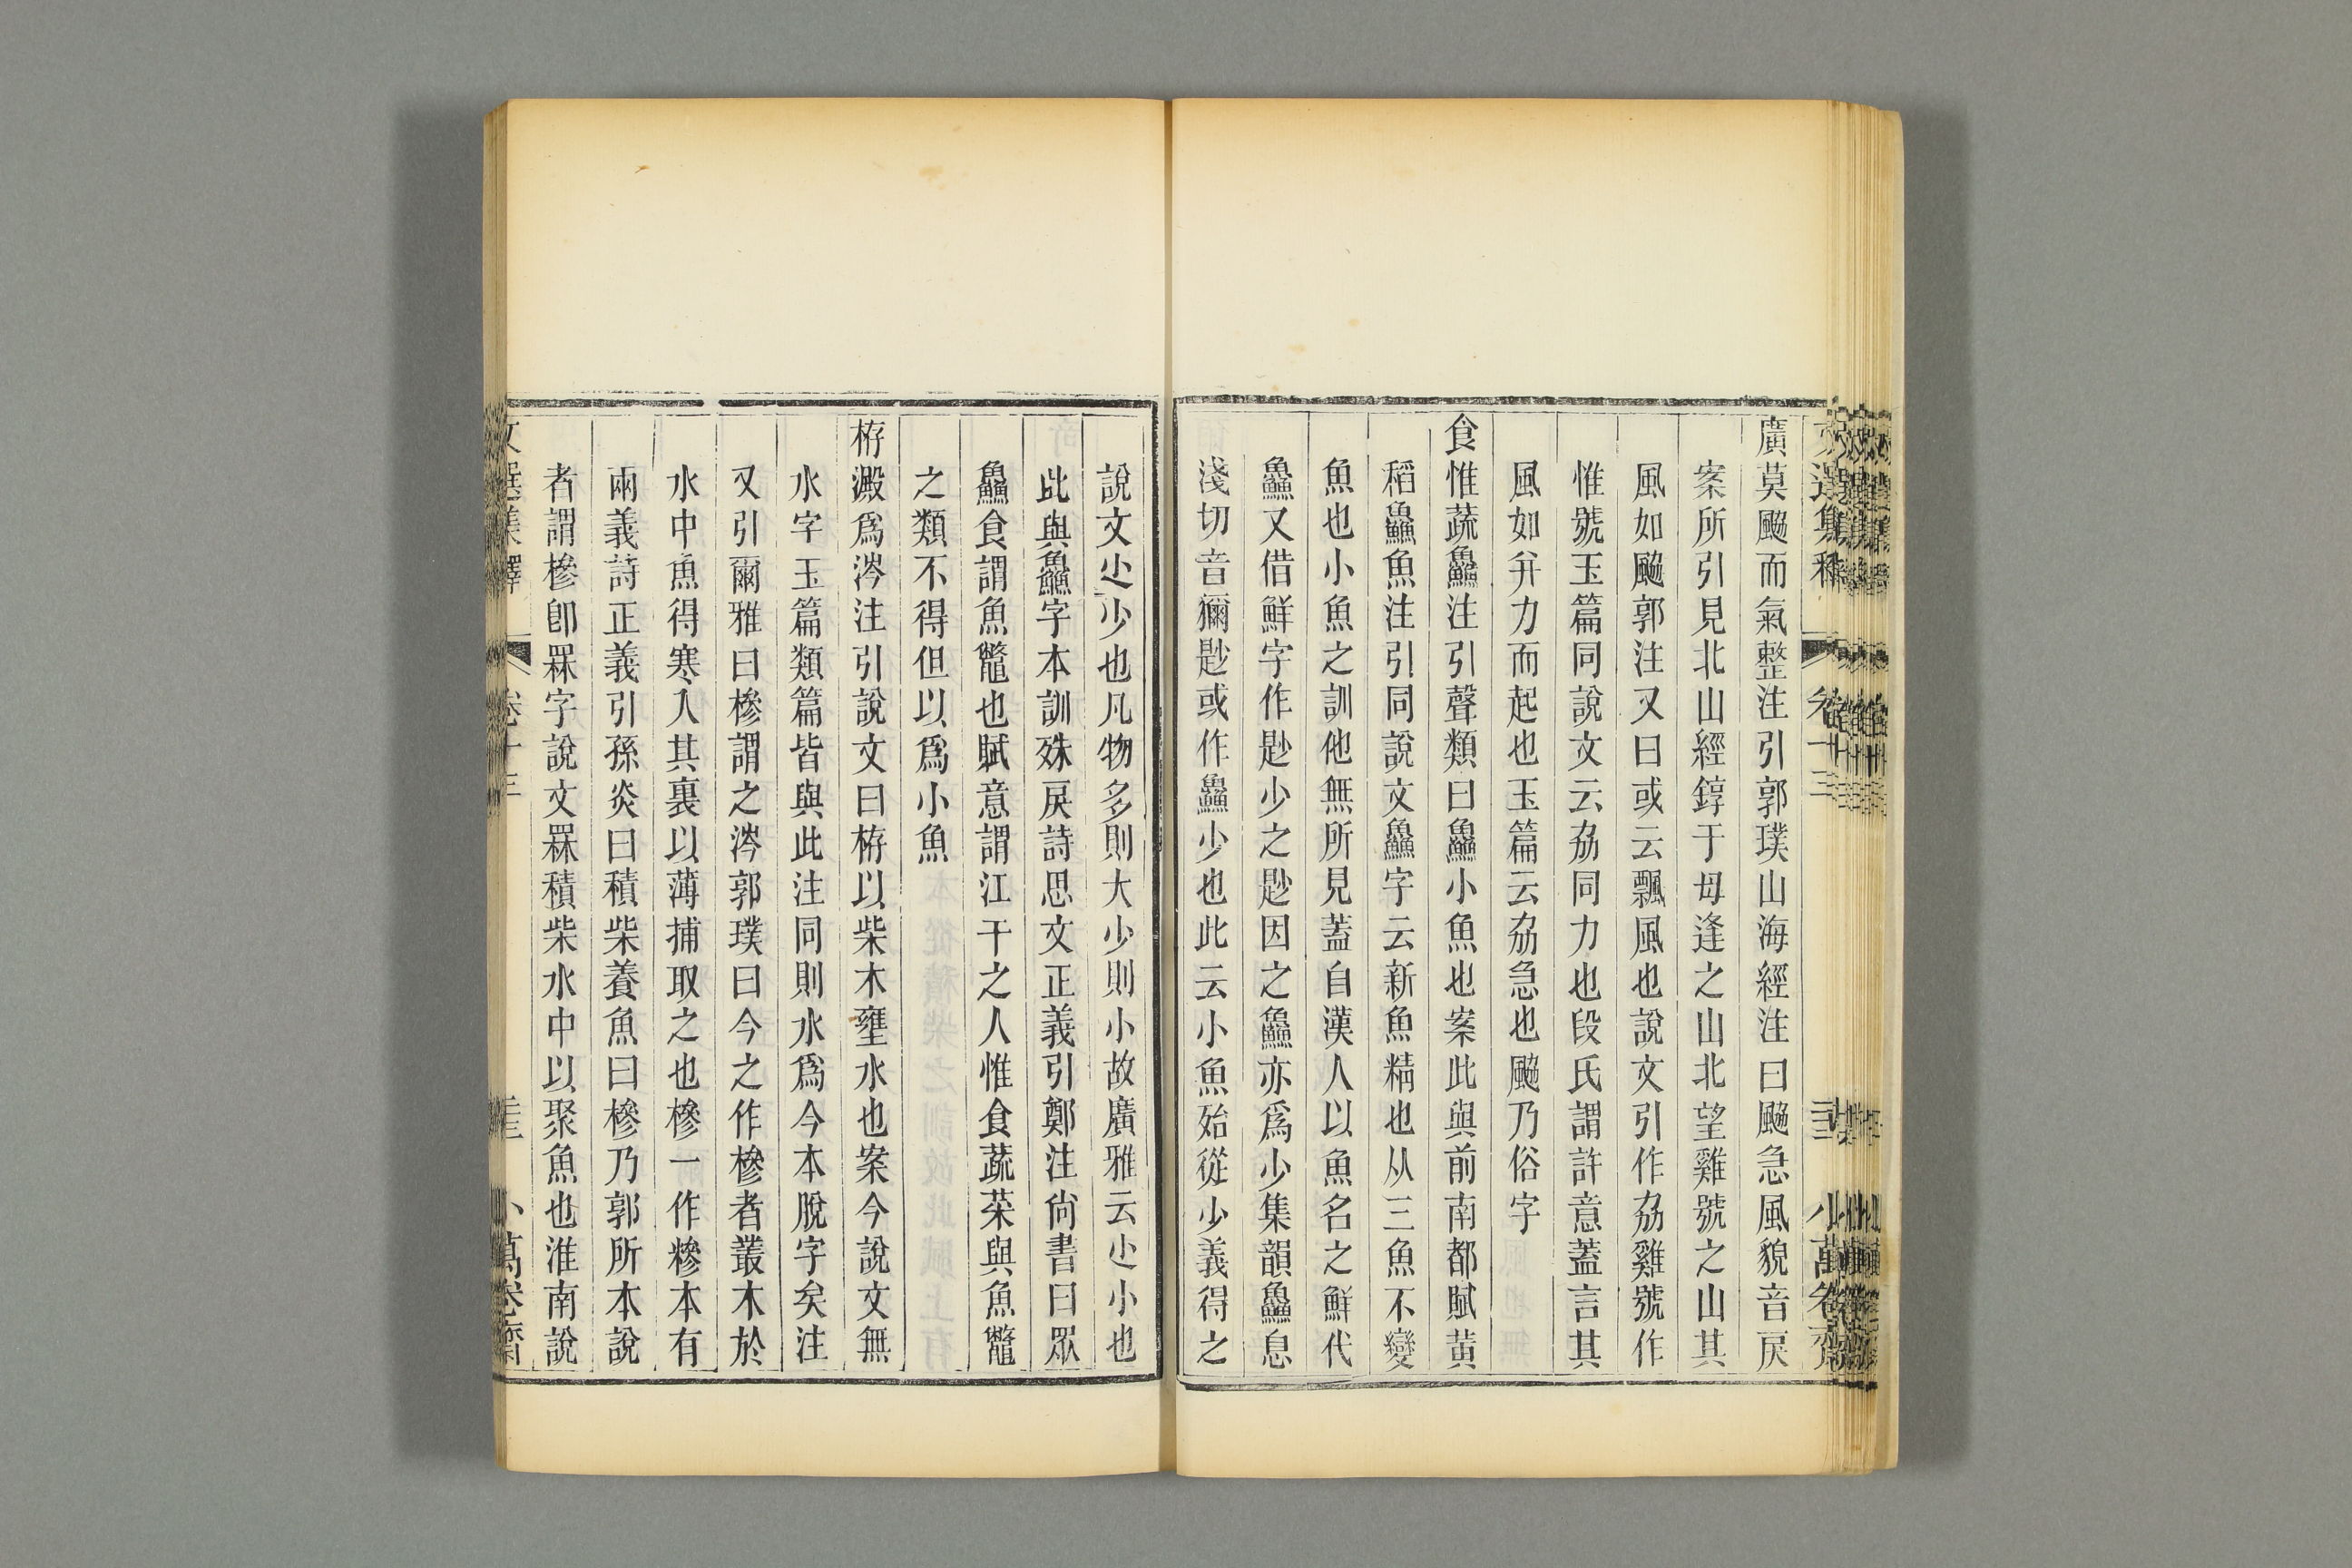 廣莫颷而氣整注引郭璞山海經注曰颷急風貌音戾
案所引見北山經錞于毋逢之山北望雞號之山其
風如颷郭注又曰或云飄風也說文引作劦雞號作
惟號玉篇同說文云劦同力也段氏謂許意蓋言其
風如并力而起也玉篇云劦急也颷乃俗字
食惟蔬鱻注引聲類曰鱻小魚也案此與前南都賦黃
稻鱻魚注引同說文鱻字云新魚精也从三魚不變
魚也小魚之訓他無所見蓋自漢人以魚名之鮮代
鱻又借鮮字作尟少之尟因之鱻亦爲少集韻鱻息
淺切音獮尟或作鱻少也此云小魚殆從少義得之
說文尐少也凡物多則大少則小故廣雅云尐小也
此與鱻字本訓殊戾詩思文正義引鄭注尙書曰眾
鱻食謂魚鼈也賦意謂江干之人惟食蔬菜與魚鼈
之類不得但以爲小魚
栫澱爲涔注引說文曰栫以柴木壅水也案今說文無
水字玉篇類篇皆與此注同則水爲今本脫字矣注
又引爾雅曰槮謂之涔郭璞曰今之作槮者叢木於
水中魚得寒入其裏以薄捕取之也槮一作糝本有
兩義詩正義引孫炎曰積柴養魚曰槮乃郭所本說
者謂槮卽罧字說文罧積柴水中以聚魚也淮南說
文選集釋 卷十三 小萬卷齋